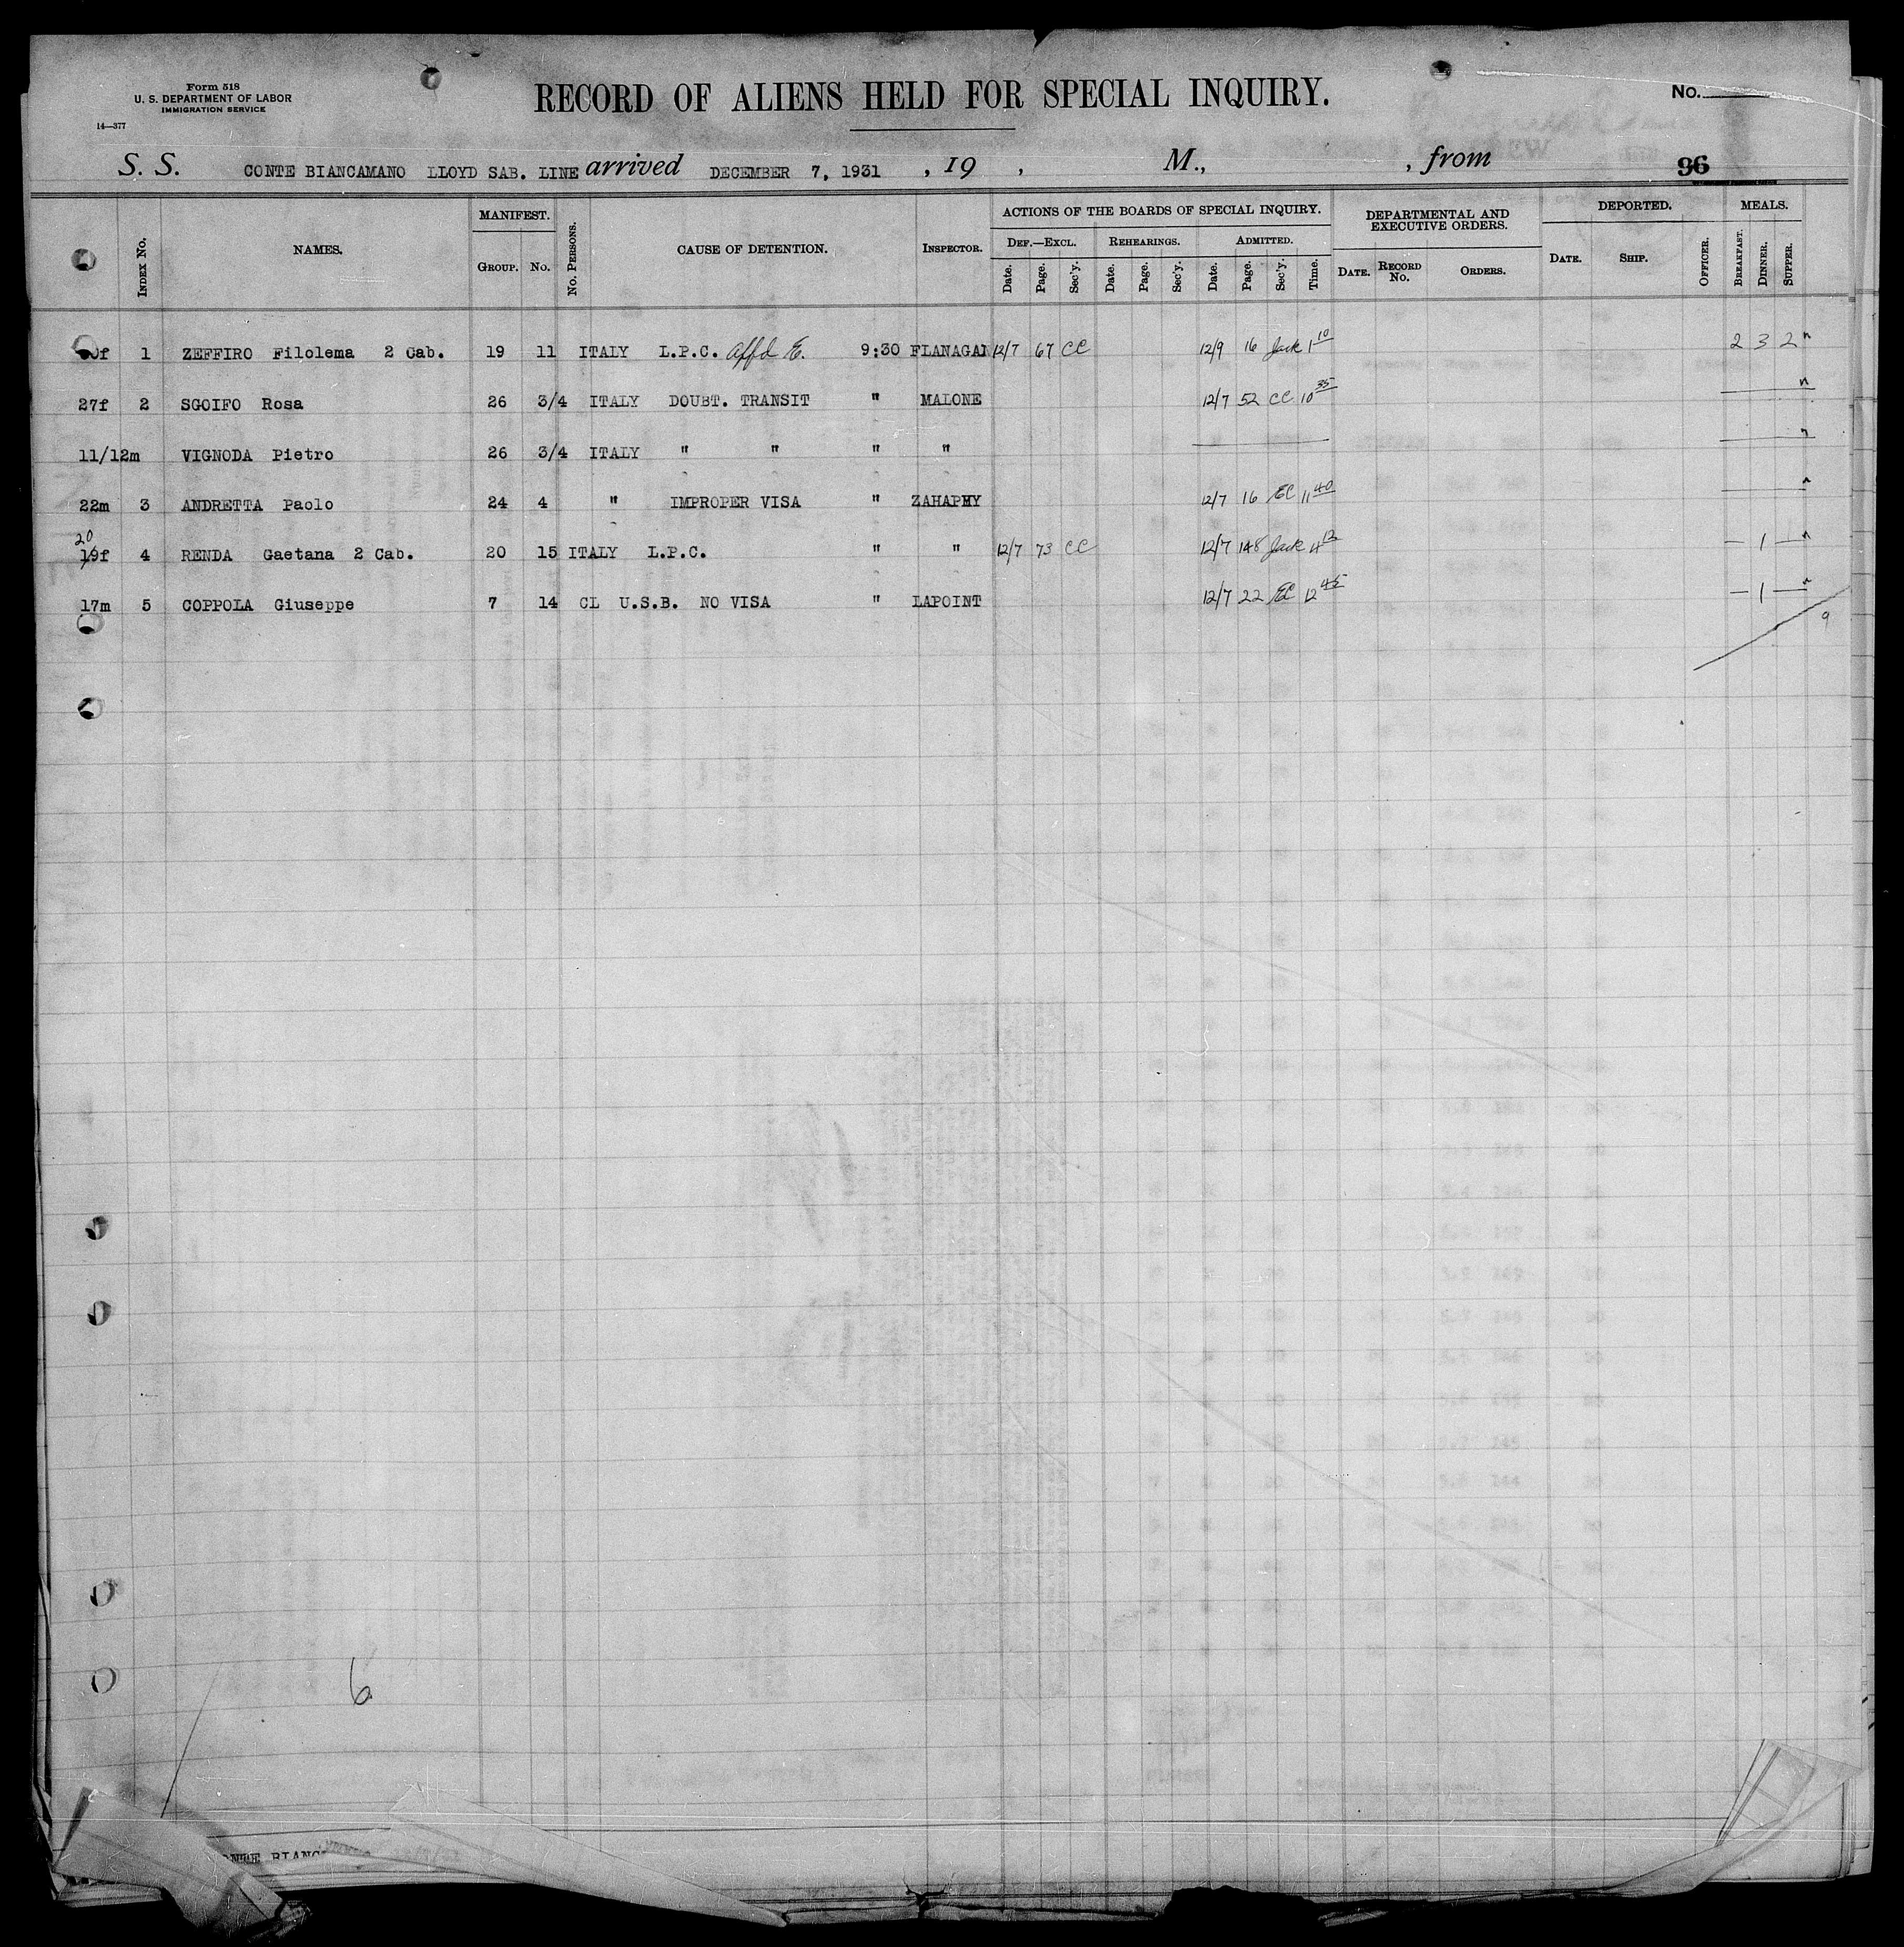 Form 518
U. S. DEPARTMENT OF LABOR
IMMIGRATION SERVICE
14—377
RECORD OF ALIENS HELD FOR SPECIAL INQUIRY.
No.
S. S. CONTE BIANCAMANO LLOYD SAB. LINE arrived DECEMBER 7, 1931 , 19 , M., , from 96
INDEX NO. NAMES. MANIFEST. GROUP. NO. NO. PERSONS. CAUSE OF DETENTION. INSPECTOR. ACTIONS OF THE BOARDS OF SPECIAL INQUIRY. DEPARTMENTAL AND EXECUTIVE ORDERS. DEPORTED. MEALS.
DEF.—EXCL. REHEARINGS. ADMITTED.
Date. Page. Sec'y. Date. Page. Sec'y. Date. Page. Sec'y. Time. DATE. RECORD NO. ORDERS. DATE. SHIP. OFFICER. BREAKFAST. DINNER. SUPPER.
1 ZEFFIRO Filolema 2 Cab. 19 11 ITALY L.P.C. Affd E. 9:30 FLANAGAN 12/7 67 CC 12/9 16 Jack 1 10 2 3 2 "
27f 2 SGOIFO Rosa 26 3/4 ITALY DOUBT. TRANSIT " MALONE 12/7 52 CC 10 35 "
11/12m VIGNODA Pietro 26 3/4 ITALY " " " " "
22m 3 ANDRETTA Paolo 24 4 " IMPROPER VISA " ZAHAPHY 12/7 16 EC 11 40 "
20
19f 4 RENDA Gaetana 2 Cab. 20 15 ITALY L.P.C. " " 12/7 73 CC 12/7 148 Jack 4 12 — 1 — "
17m 5 COPPOLA Giuseppe 7 14 CL U.S.B. NO VISA " LAPOINT 12/7 22 EC 12 45 — 1 — "
9
6